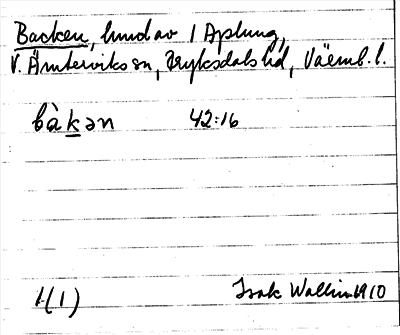 Backen, hmd av 1 Aplung,
V. Ämterviks sn, Fryksdals hd, Värml. l.
bàkən 42:16
1(1) Isak Wallin 1910